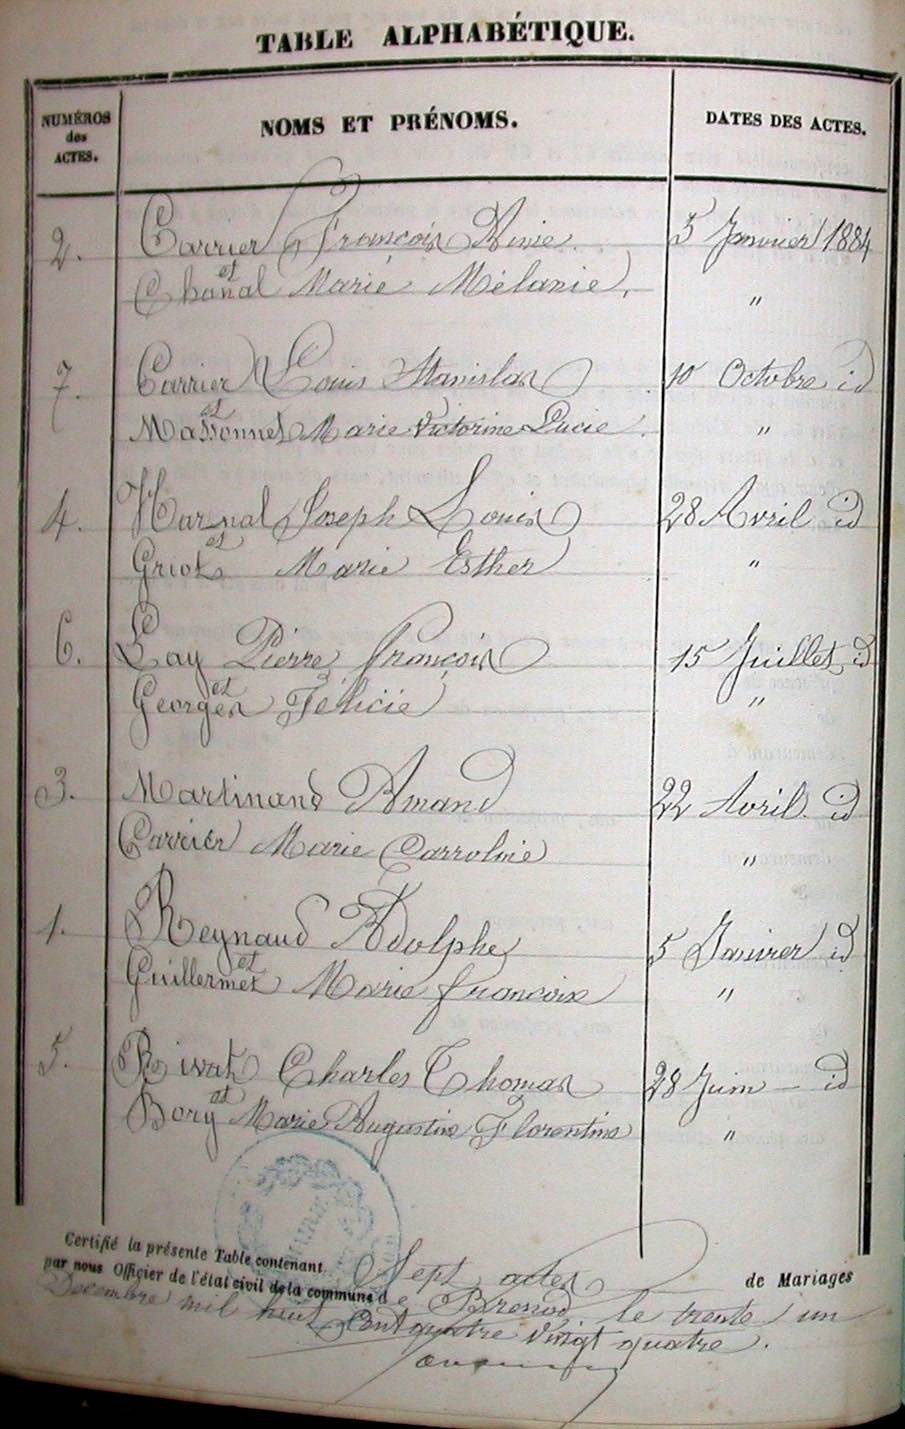 TABLE ALPHABÉTIQUE.
NUMÉROS des ACTES.
NOMS ET PRÉNOMS.
DATES DES ACTES.
2. Carrier François Aimé. 5 Janvier 1884
et
Chanal Marie Mélanie, "
7. Carrier Louis Stanislas 10 Octobre id
et
Massonnet Marie Victorine Lucie. "
4. Joseph Louis 28 Avril id
et
Griot Marie Esther "
6. Lay Pierre François 15 Juillet id
et
Georges Félicie "
3. Martinand Amand 22 Avril. id
Carrier Marie Carroline "
1. Reynaud Adolphe 5 Janvier id
et
Guillermet Marie françoise "
5. Rivat Charles Thomas 28 Juin – id
et
Bory Marie Augustine Florentine "
Certifié la présente Table contenant Sept actes de Mariages
par nous Officier de l'état civil de la commune de Brenod le trente un
Decembre mil huit Cent quatre Vingt quatre.